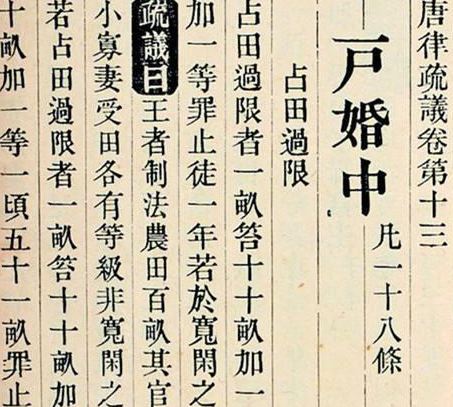 唐律疏議卷第十三
凡一十八條
戶婚中
占田過限
占田過限者一畝笞十十畝加一
加一等罪止徒一年若於寬閑之
疏議曰王者制法農田百畝其官
小寡妻受田各有等級非寬閑之
若占田過限者一畝笞十十畝加
十畝加一等一頃五十一畝罪止